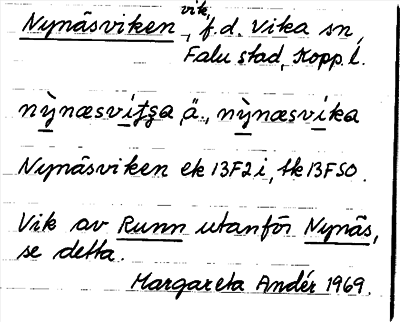 Nynäsviken, vik, f.d. Vika sn,
Falu stad, Kopp. l.
nỳnæsvi̱ţşa, ä., nỳnæsvi̱ka
Nynäsviken ek 13F2i, tk 13FSO.
Vik av Runn utanför Nynäs,
se detta.
Margareta Andér 1969.